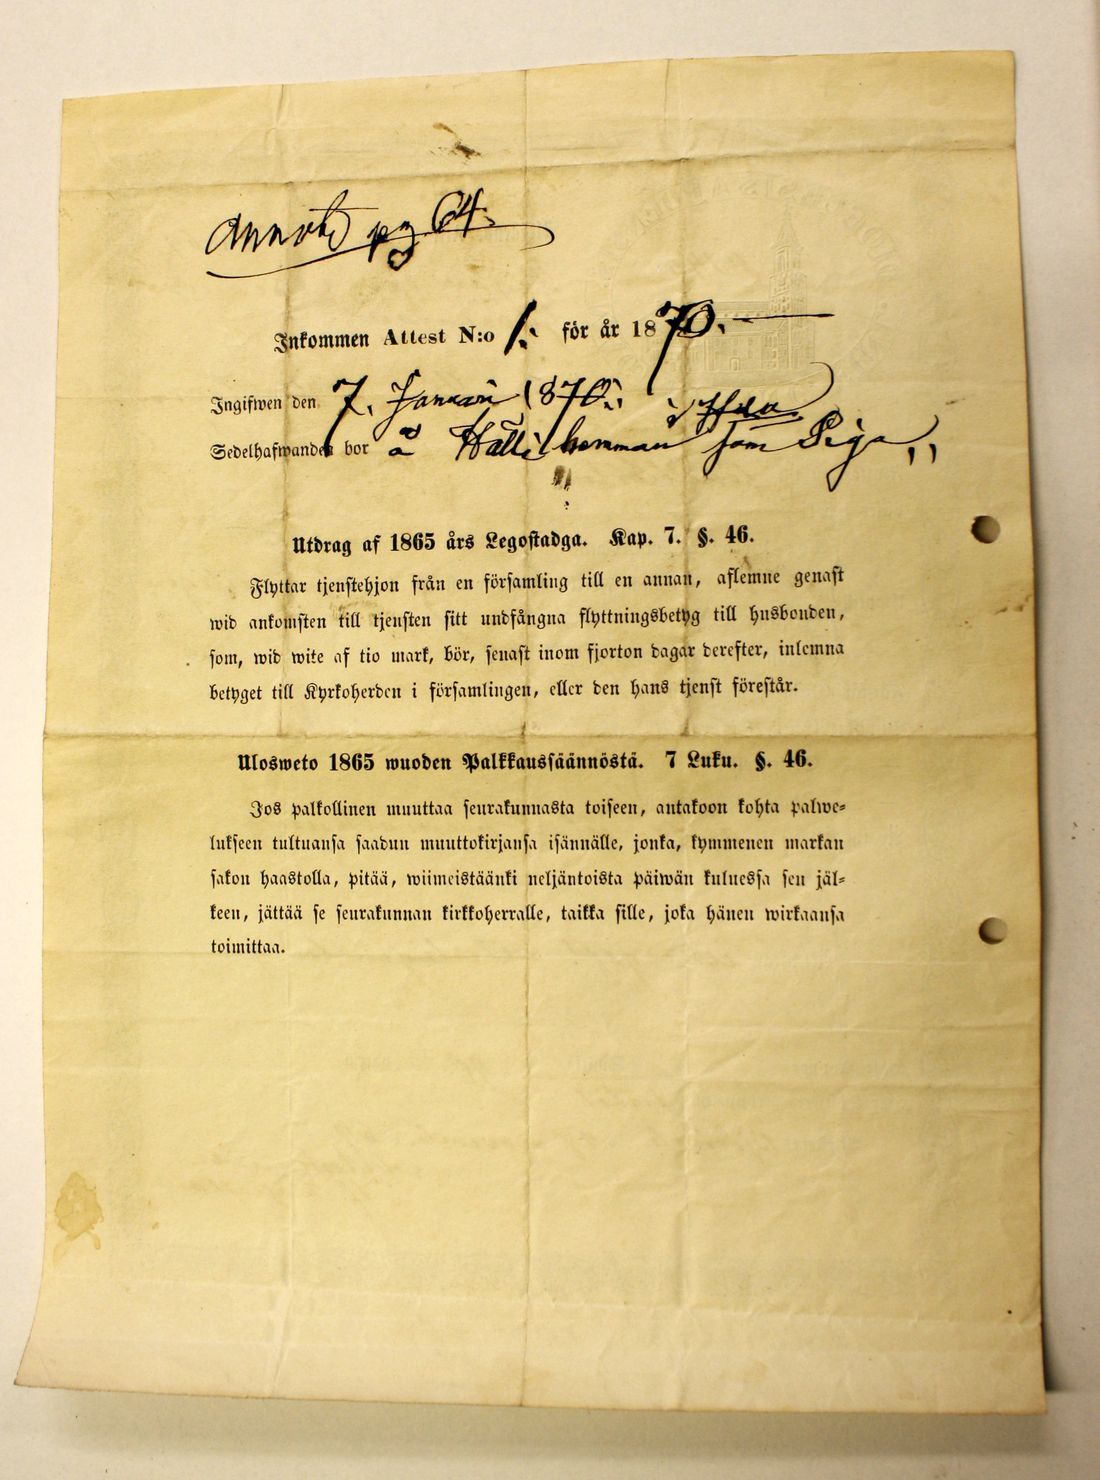 Annoted pg 64.
Inkommen Attest N:o 1. för år 1870.
Ingifwen den 7. Januari 1870.
Sedelhafwanden bor å hemman som Piga
Utdrag af 1865 års Legostadga. Kap. 7. §. 46.
Flyttar tjenstehjon från en församling till en annan, aflemne genast
wid ankomsten till tjensten sitt undfångna flyttningsbetyg till husbonden,
som, wid wite af tio mark, bör, senast inom fjorton dagar derefter, inlemna
betyget till Kyrkoherden i församlingen, eller den hans tjenst förestår.
Ulosweto 1865 wuoden Palkkaussäännöstä. 7 Luku. §. 46.
Jos palkollinen muuttaa seurakunnasta toiseen, antakoon kohta palwe-
lukseen tultuansa saadun muuttokirjansa isännälle, jonka, kymmenen markan
sakon haastolla, pitää, wiimeistäänki neljäntoista päiwän kuluessa sen jäl-
keen, jättää se seurakunnan kirkkoherralle, taikka sille, joka hänen wirkaansa
toimittaa.